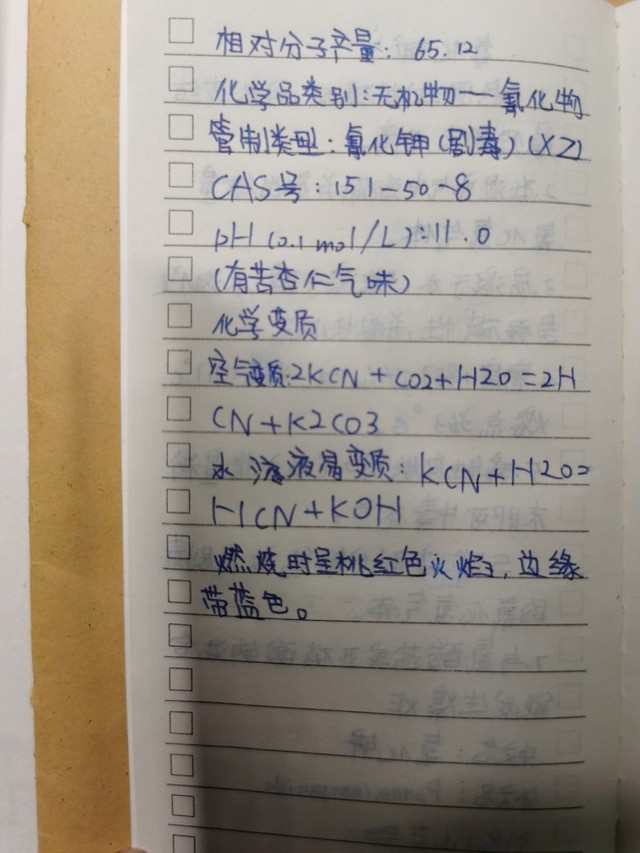 相对分子产量: 65.12
化学品类别:无机物——氰化物
管制类型:氰化钾(剧毒)(XZ)
CAS号:151-50-8
pH(0.1mol/L):11.0
(有苦杏仁气味)
化学变质
空气变质:2KCN+CO2+H2O=2H
CN+K2CO3
水溶液易变质:KCN+H2O=
HCN+KOH
燃烧时呈桃红色火焰,边缘
带蓝色。